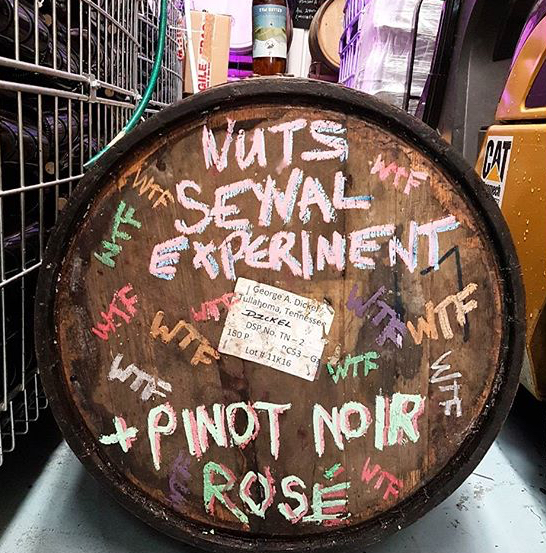 NUTS
WTF
WTF
SEYVAL
WTF
EXPERIMENT
CAT
George A. Dickel
Tullahoma, Tennessee
DICKEL
DSP No. TN-2
180 P
Lot # 11K16
WTF
WTF
WTF
WTF
WTF
WTF
WTF
WTF
WTF
+ PINOT NOIR
ROSÉ
WTF